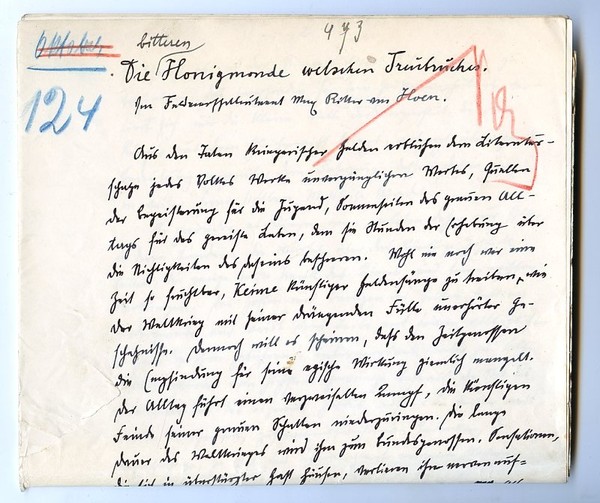 Oktober
bitteren
473
124
Die Honigmonde welschen Treubruches.
Von Feldmarschalleutnant Max Ritter von Hoen.
Aus den Taten kriegerischer Helden erblühen dem Literatur-
schatze jedes Volkes Werke unvergänglichen Wertes, Quellen
der Begeisterung für die Jugend, Sonnenseiten des grauen All-
tags für das gereifte Leben, dem sie Stunden der Erhebung über
die Nichtigkeiten des Daseins bescheren. Wohl nie noch war eine
Zeit so fruchtbar, Keime künftiger Heldensänge zu treiben, wie
der Weltkrieg mit seiner drängenden Fülle unerhörter Ge-
schehnisse. Dennoch will es scheinen, dass den Zeitgenossen
die Empfindung für seine epische Wirkung ziemlich mangelt.
Der Alltag führt einen verzweifelten Kampf, die künftigen
Feinde seiner grauen Schatten niederzuringen. Die lange
Dauer des Weltkrieges wird ihm zum Bundesgenossen. Sensationen,
die sich in überstürzter Hast häufen, verlieren ihre